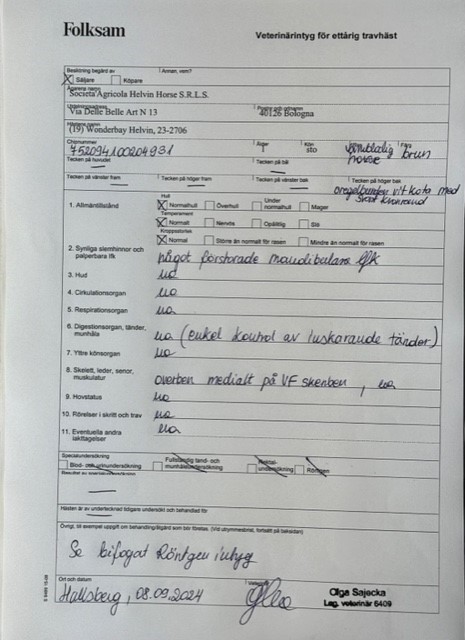 Folksam
Veterinärintyg för ettårig travhäst
Besiktning begärd av
Annan, vem?
Säljare
Köpare
Ägarens namn
Societa Agricola Helvin Horse S.R.L.S.
Utdelningsadress
Postnr och ortnamn
Via Delle Belle Art N 13
40126 Bologna
Hästens namn
(19) Wonderbay Helvin, 23-2706
Chipnummer
Ålder
Kön
Ras
Färg
752094100204931
1
sto
varmblodig brun
Tecken på huvudet
Tecken på bål
Tecken på vänster fram
Tecken på höger fram
Tecken på vänster bak
Tecken på höger bak
oregelbunden vit kota med
svart kronrand
1. Allmäntillstånd
Hull
Normalhull
Överhull
Under normalhull
Mager
Temperament
Normalt
Nervös
Opålitlig
Slö
Kroppsstorlek
Normal
Större än normalt för rasen
Mindre än normalt för rasen
2. Synliga slemhinnor och
palperbara lfk
något förstorade mandibulara lfk
3. Hud
ua
4. Cirkulationsorgan
ua
5. Respirationsorgan
ua
6. Digestionsorgan, tänder,
munhåla
ua (enkel kontrol av tuskarande tänder)
7. Yttre könsorgan
ua
8. Skelett, leder, senor,
muskulatur
överben medialt på VF skenben, ua
9. Hovstatus
ua
10. Rörelser i skritt och trav
ua
11. Eventuella andra
iakttagelser
ua
Specialundersökning
Blod- och urinundersökning
Fullständig tand- och
munhåleundersökning
undersökning
Röntgen
Resultat av specialundersökning
Hästen är av undertecknad tidigare undersökt och behandlad för
Övrigt, till exempel uppgift om behandling/åtgärd som bör företas. (Vid utrymmesbrist, fortsätt på baksidan)
Se bifogat Röntgen intyg
Ort och datum
Hallsberg, 08.09.2024
Olga Sajecka
Leg. veterinär 6409